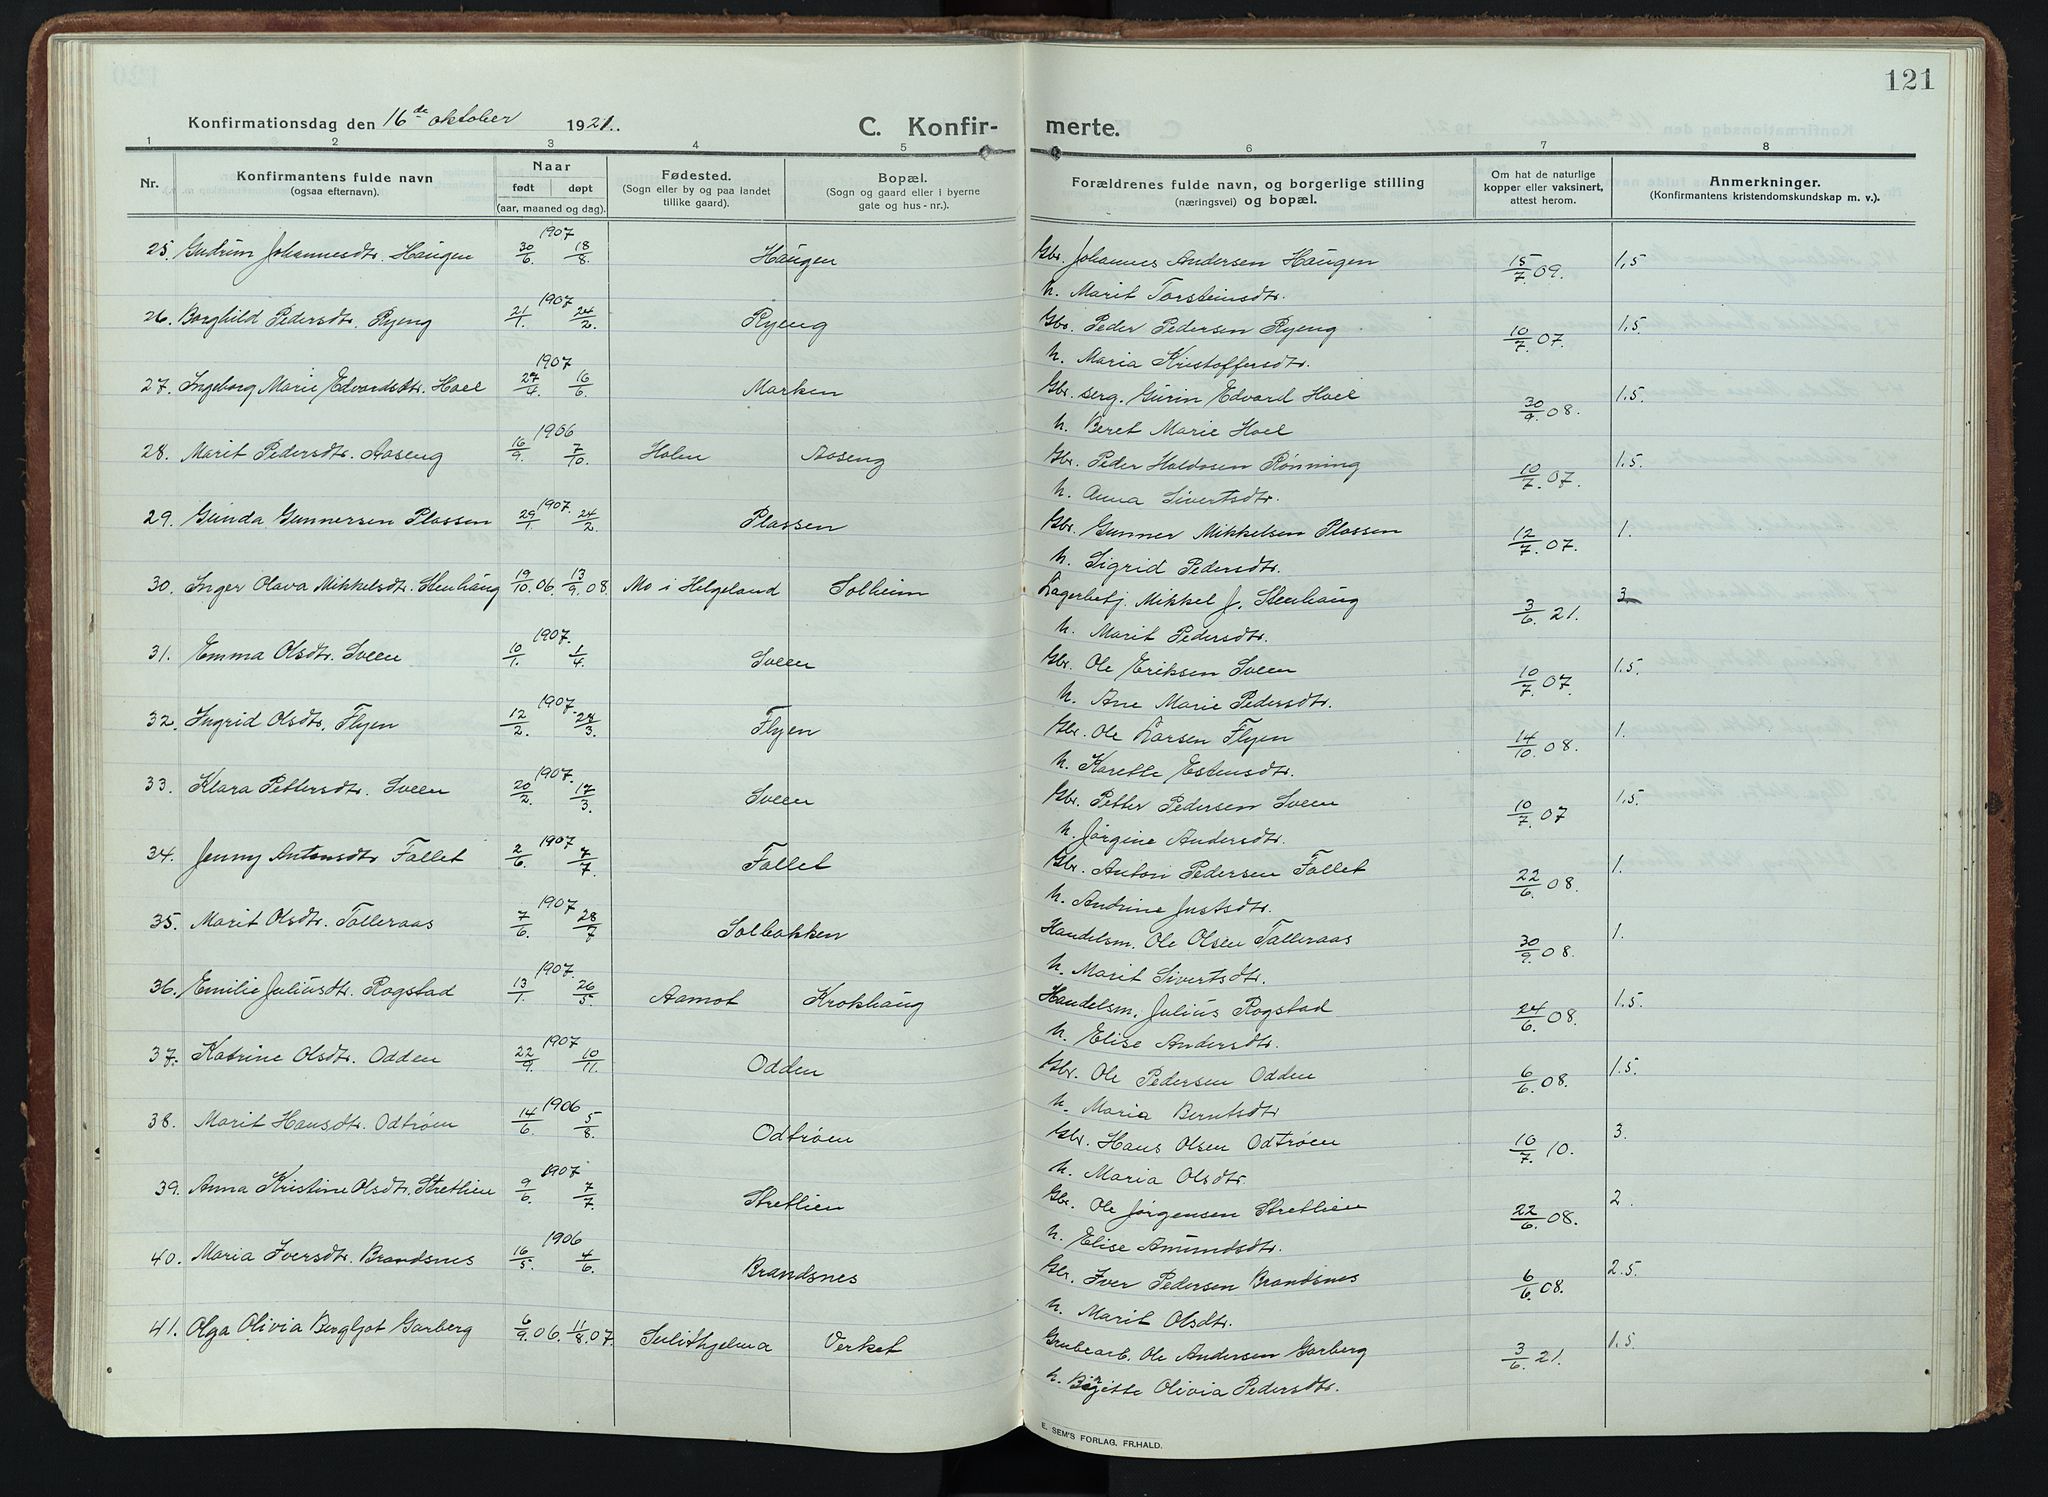 121
Konfirmationsdag den 16de oktober 1921.
C. Konfir-merte.
1 2 3 4 5 6 7 8
Nr. Konfirmantens fulde navn (ogsaa efternavn). Naar født døpt (aar, maaned og dag). Fødested. (Sogn eller by og paa landet tillike gaard). Bopæl. (Sogn og gaard eller i byerne gate og hus-nr.). Forældrenes fulde navn, og borgerlige stilling (næringsvei) og bopæl. Om hat de naturlige kopper eller vaksinert, attest herom. Anmerkninger. (Konfirmantens kristendomskundskap m. v.).
25. Gudrun Johannesdtr. Haugen 1907 30/6. 18/8. Haugen Gbr. Johannes Andersen Haugen 15/7 09. 1,5
h. Marit Torsteinsdtr.
26. Borghild Pedersdtr. Ryeng 1907 21/1. 24/2. Ryeng Gbr. Peder Pedersen Ryeng 10/7. 07. 1,5
h. Maria Kristoffersdtr.
27. Ingeborg Marie Edvardsdtr. Hoel 1907 27/4. 16/6. Marken Gbr. serg. Gurin Edvard Hoel 30/9 08. 1.5.
h. Beret Marie Hoel
28. Marit Pedersdtr. Aaseng 1906 16/9. 7/10. Holen Aaseng Gbr. Peder Haldosen Rønning 10/7. 07. 1.5.
h. Anna Sivertsdtr.
29. Gunda Gunnersen Plassen 1907. 29/1. 24/2. Plassen Gbr. Gunner Mikkelsen Plassen 12/7. 07. 1.
h. Sigrid Pedersdtr.
30. Inger Olava Mikkelsdtr. Stenhaug 19/10. 06. 13/9. 08. Mo i Helgeland Solheim Lagerbetj. Mikkel J. Stenhaug 3/6. 21. 3
h. Marit Pedersdtr.
31. Emma Olsdtr. Sveen 1907. 10/1. 1/4. Sveen Gbr. Ole Eriksen Sveen 10/7. 07. 1.5.
h. Ane Marie Pedersdtr.
32. Ingrid Olsdtr. Flyen 1907. 12/2. 24/3. Flyen Gbr. Ole Larsen Flyen 14/10 08. 1.
h. Karette Estensdtr.
33. Klara Pettersdtr. Sveen 1907. 20/2. 17/3. Sveen Gbr. Petter Pedersen Sveen 10/7. 07 1.5.
h. Jørgine Andersdtr.
34. Jenny Antonsdtr Fallet 1907 2/6. 7/7. Fallet Gbr. Anton Pedersen Fallet 22/6. 08. 1.
h. Andrine Justsdtr.
35. Marit Olsdtr. Talleraas 1907 7/6. 28/7 Solbakken Handelsm. Ole Olsen Talleraas 30/9. 08. 1.
h. Marit Sivertsdtr.
36. Emilie Juliusdtr. Rogstad 1907. 13/1. 26/5. Aamot Krokhaug Handelsm. Julius Rogstad 24/6. 08. 1.5.
h. Elise Andersdtr.
37. Katrine Olsdtr. Odden 1907 22/9. 10/11. Odden Gbr. Ole Pedersen Odden 6/6. 08. 1.5.
h. Maria Berntsdtr
38. Marit Hansdtr. Odtrøen 1906 14/6. 5/8. Odtrøen Gbr. Hans Olsen Odtrøen 10/7. 10. 3.
h. Maria Olsdtr.
39. Anna Kristine Olsdtr. Stretlien 1907 9/6. 7/7. Stretlien Gbr. Ole Jørgensen Stretlien 22/6. 08. 2.
h. Elise Amundsdtr.
40. Maria Iversdtr. Brandsnes 1906 16/5. 4/6. Brandsnes Gbr. Iver Pedersen Brandsnes 6/6. 08. 2.5.
h. Marit Olsdtr.
41. Olga Olivia Bergljot Garberg 6/9. 06. 11/8. 07. Sulithjelma Verket Grubearb. Ole Andersen Garberg 3/6. 21. 1.5.
h. Birgitte Olivia Pedersdtr.
E. SEM'S FORLAG. FR.HALD.